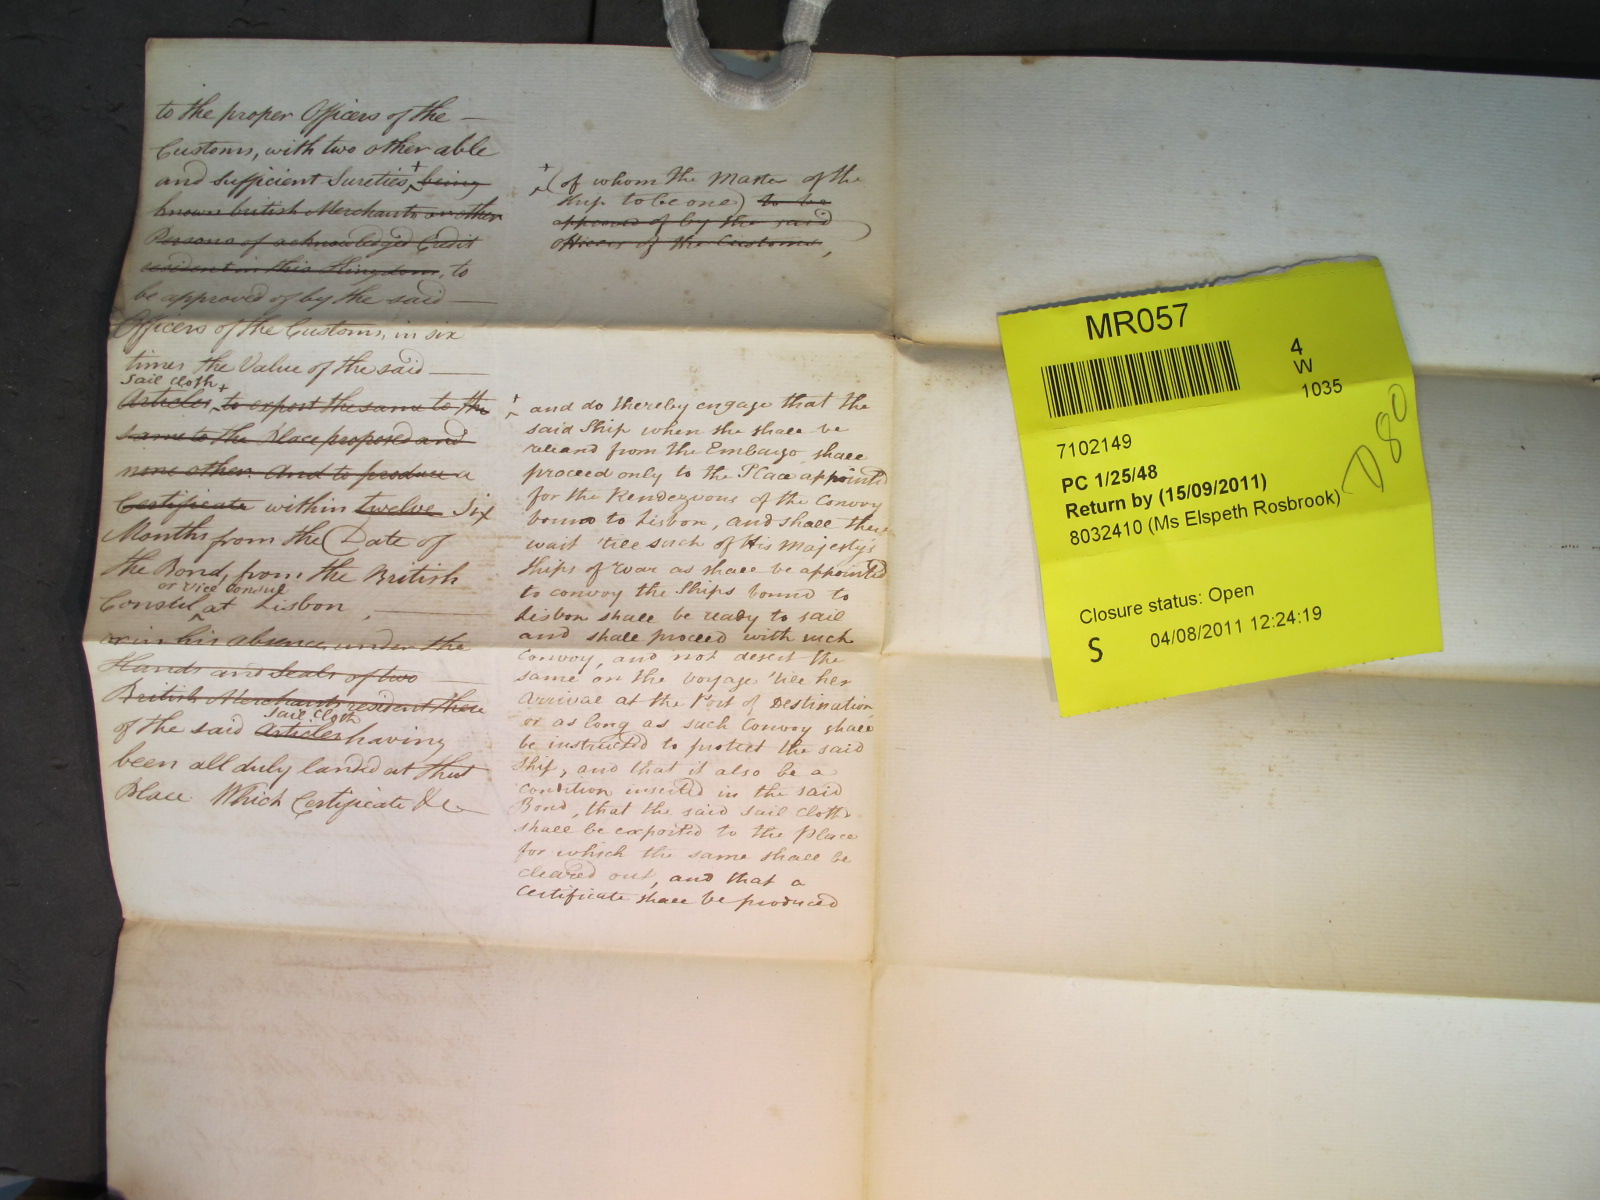 to the proper Officers of the
Customs, with two other able
and sufficient Sureties, being
known british Merchants or other
Persons of acknowledged Credit
resident in this Kingdom, to
be approved of by the said
Officers of the Customs, in six
times the Value of the said
Sail cloth +
Articles, to export the same to the
same to the Place proposed and
none other. And to produce a
Certificate within twelve Six
Months from the Date of
the Bond, from the British
or Vice Consul
Consul at Lisbon,
or in his absence, under the
Hands and Seals of two
British Merchants resident there
Sail Cloth
of the said Articles having
been all duly landed at that
Place Which Certificate &c
+ (of whom the Master of the
Ship to be one) to be
approved of by the said
Officers of the Customs,
+ and do thereby engage that the
said Ship when she shall be
releasd from the Embargo shall
proceed only to the Place appointed
for the Rendezvous of the Convoy
bound to Lisbon, and shall there
wait 'till such of His Majesty's
Ships of War as shall be appointed
to convoy the Ships bound to
Lisbon shall be ready to sail
and shall proceed with such
Convoy, and not desert the
same on the Voyage 'till her
Arrival at the Port of Destination
or as long as such Convoy shall
be instructed to protect the said
Ship, and that it also be a
Condition inserted in the said
Bond, that the said Sail Cloth
shall be exported to the Place
for which the same shall be
cleared out, and that a
Certificate shall be produced
MR057
4
W
1035
D80
7102149
PC 1/25/48
Return by (15/09/2011)
8032410 (Ms Elspeth Rosbrook)
Closure status: Open
S 04/08/2011 12:24:19